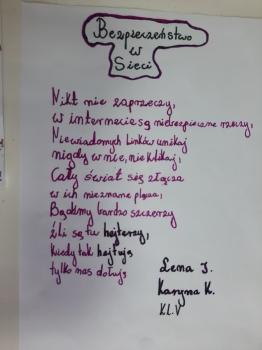 Bezpieczeństwo
w
Sieci
Nikt nie zaprzeczy,
w internecie są niebezpieczne rzeczy,
Niewiadomych linków unikaj
nigdy w nie, nie klikaj,
Cały świat się złącza
w ich nieznane
Bądźmy bardzo szczerzy
źli są tu hejterzy,
kiedy tak hejtują
tylko nas dołują
Lena J.
Karyna K.
KL.V